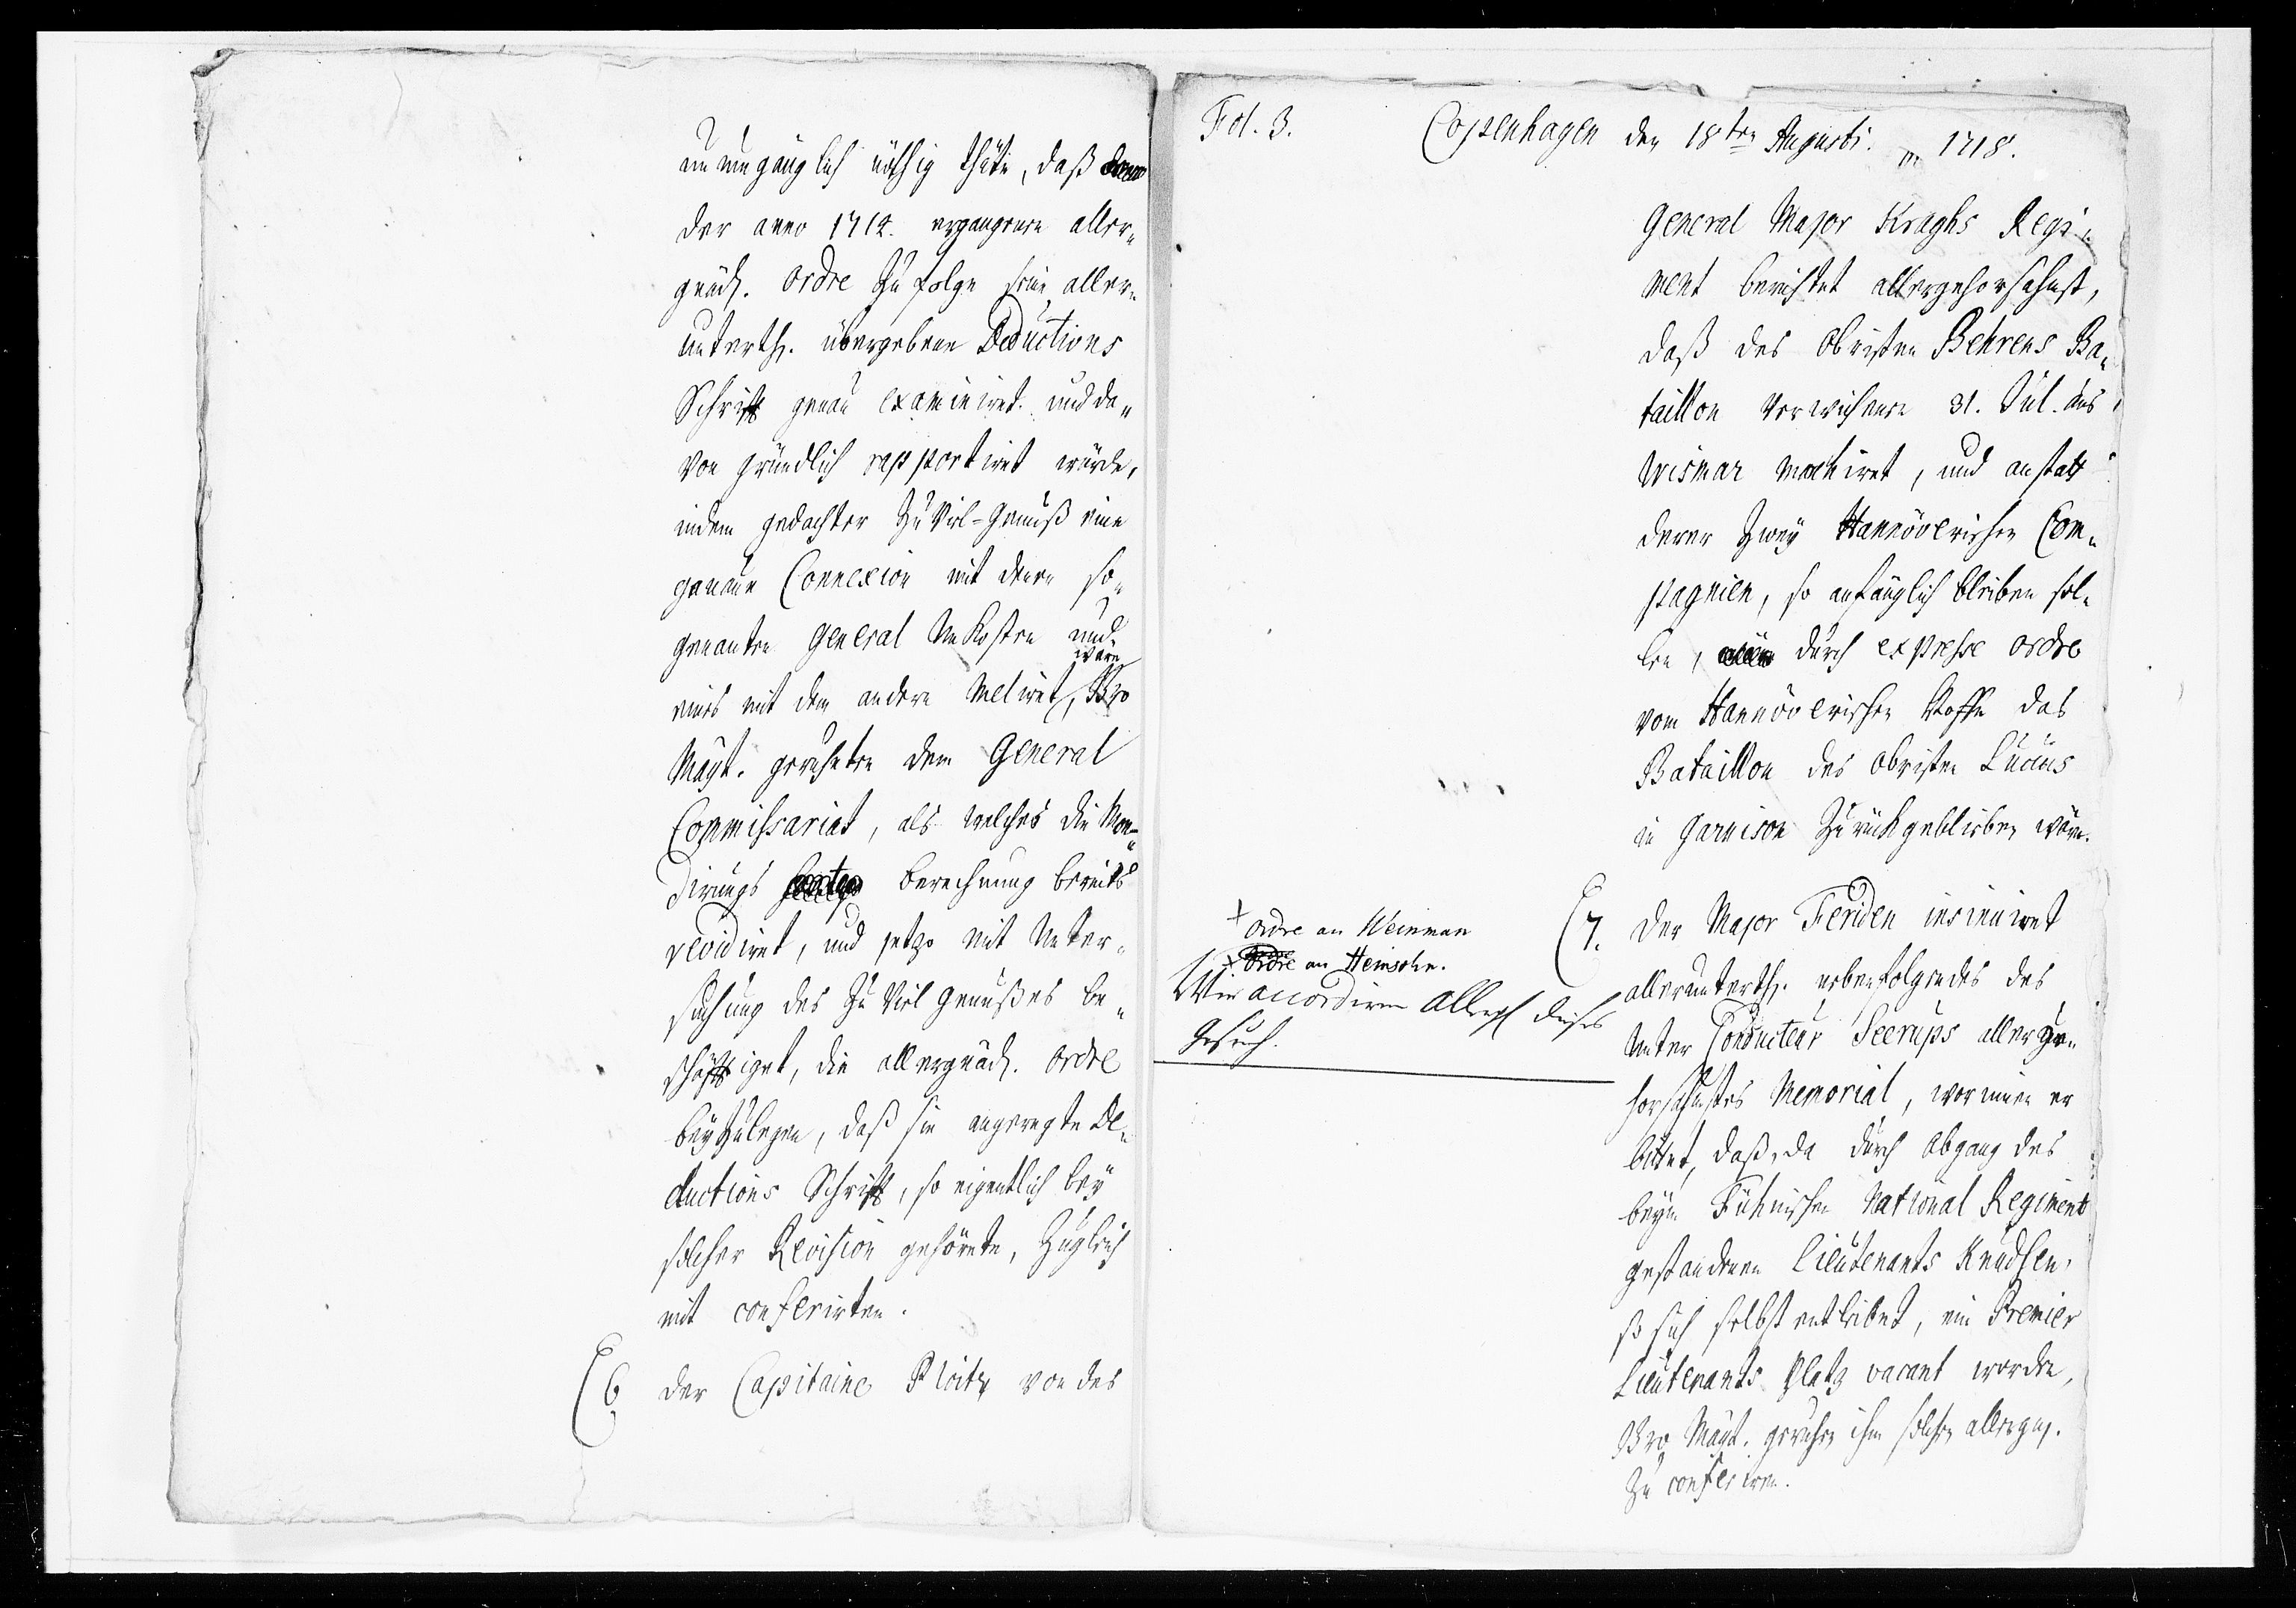 unumgänglich nöthig thäte, daß
der anno 1712. ergangenen aller„
gnäd. ordre zu folge seine aller„
unterth. übergebene Deductions
Schrifft genau examiniret und da„
von gründlich rapportiret würde,
indem gedachter Zu Viel-Genuß eine
genaue Connexion mit denen so„
genanten General Unkosten und
wäre
eines mit dem andern meliret, Ew
Mayt. geruheten dem General
Commissariat, als welches die Mon„
dirungs berechnung bereits
revidiret, und jetzo mit Unter„
suchung des Zu Viel Genußes be„
schäfftiget, die allergnäd. Ordre
beyzulegen, daß sie angeregte De„
ductions Schrifft, so eigentlich bey
solcher Revision gehörete, Zugleich
mit conferirten.
6 Der Capitaine Ploitz von des
Fol. 3. Copenhagen den 18ten Augusti. 1718.
General Major Kraghs Regi„
ment berichtet allergehorsahmst,
daß des Obristen Behrens Ba„
taillon verwichenen 31. Jul. aus
Wismar marchiret, und anstatt
derer Zwey Hannöverischen Com„
pagnien, so anfänglich bleiben sol„
len, durch expresse ordre
vom Hannöverischen Hoffe das
Bataillon des Obristen Lucius
in Garnison Zurückgeblieben wäre.
+ Ordre an Weinman
+ Ordre an Heinsohn.
Wir accordiren Allergn dieses
Gesuch.
7. Der Major Feriden insinuiret
allerunterth. nebenfolgendes des
Unter Conducteur Seerups allerge„
horsahmstes Memorial, worinnen er
bittet, daß, da durch Abgang des
beym Fühnischen National Regiment
gestandenen Lieutenants Knudsen,
so sich selbst entleibet, ein Premier
Lieutenants Platz vacant worden,
Ew Mayt. geruhen ihm solchen allergn.
Zu conferiren.